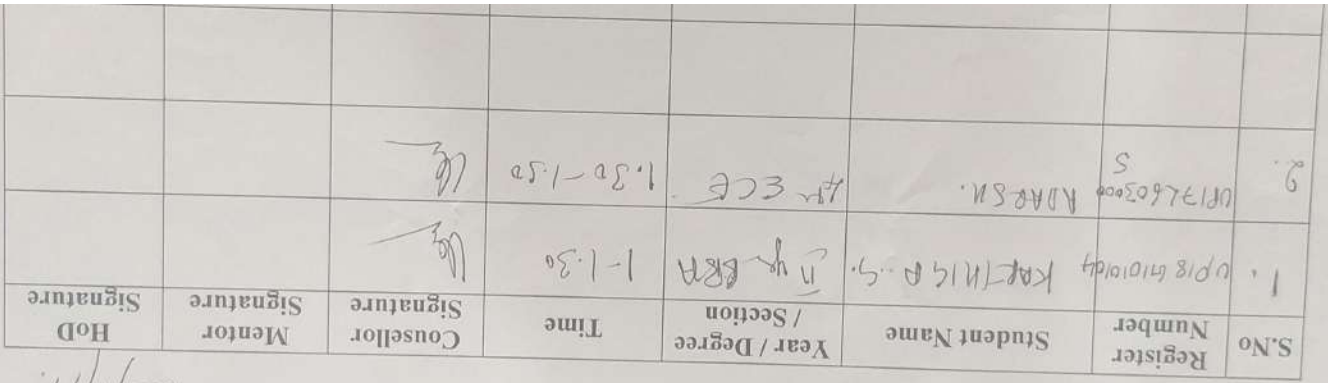 S.No
Register Number
Student Name
Year / Degree / Section
Time
Cousellor Signature
Mentor Signature
HoD Signature
1.
KARTHIGA .S.
II yr BBA
1-1.30
2.
ADARSH.
4th ECE
1.30-1.50